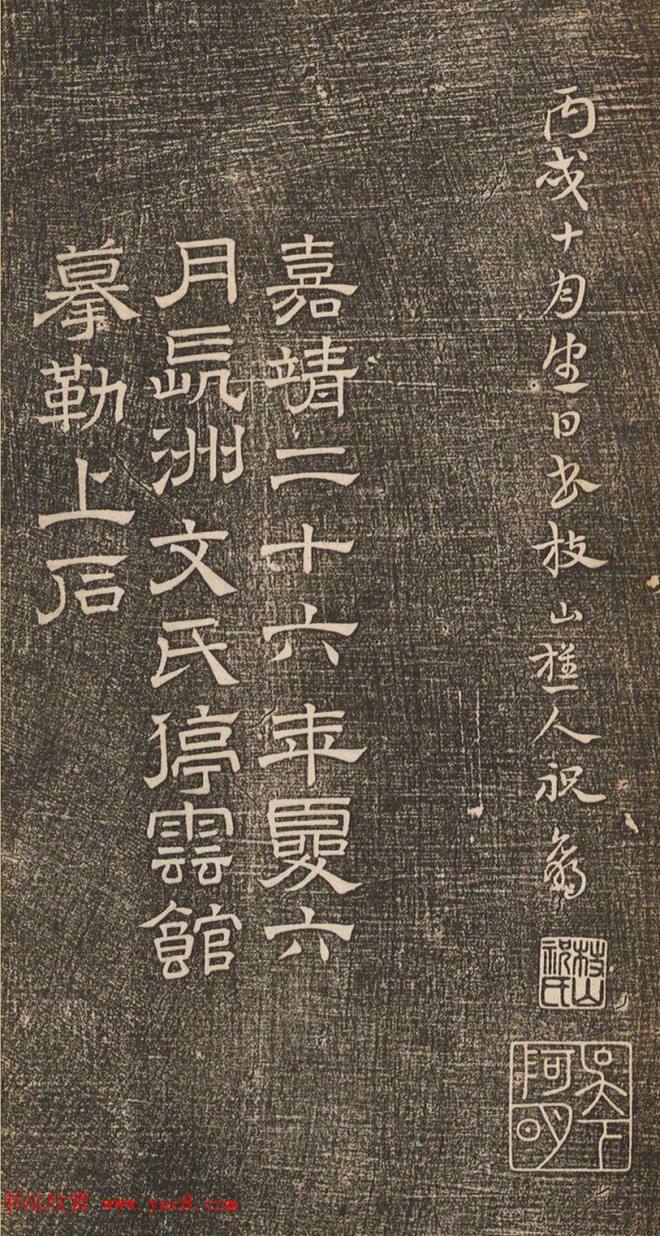 丙戌十月生日書枝山樵人祝允明
枝山
祝氏
吳下
阿明
嘉靖二十六年夏六
月長洲文氏停雲館
摹勒上石
书法欣赏 www.yac8.com